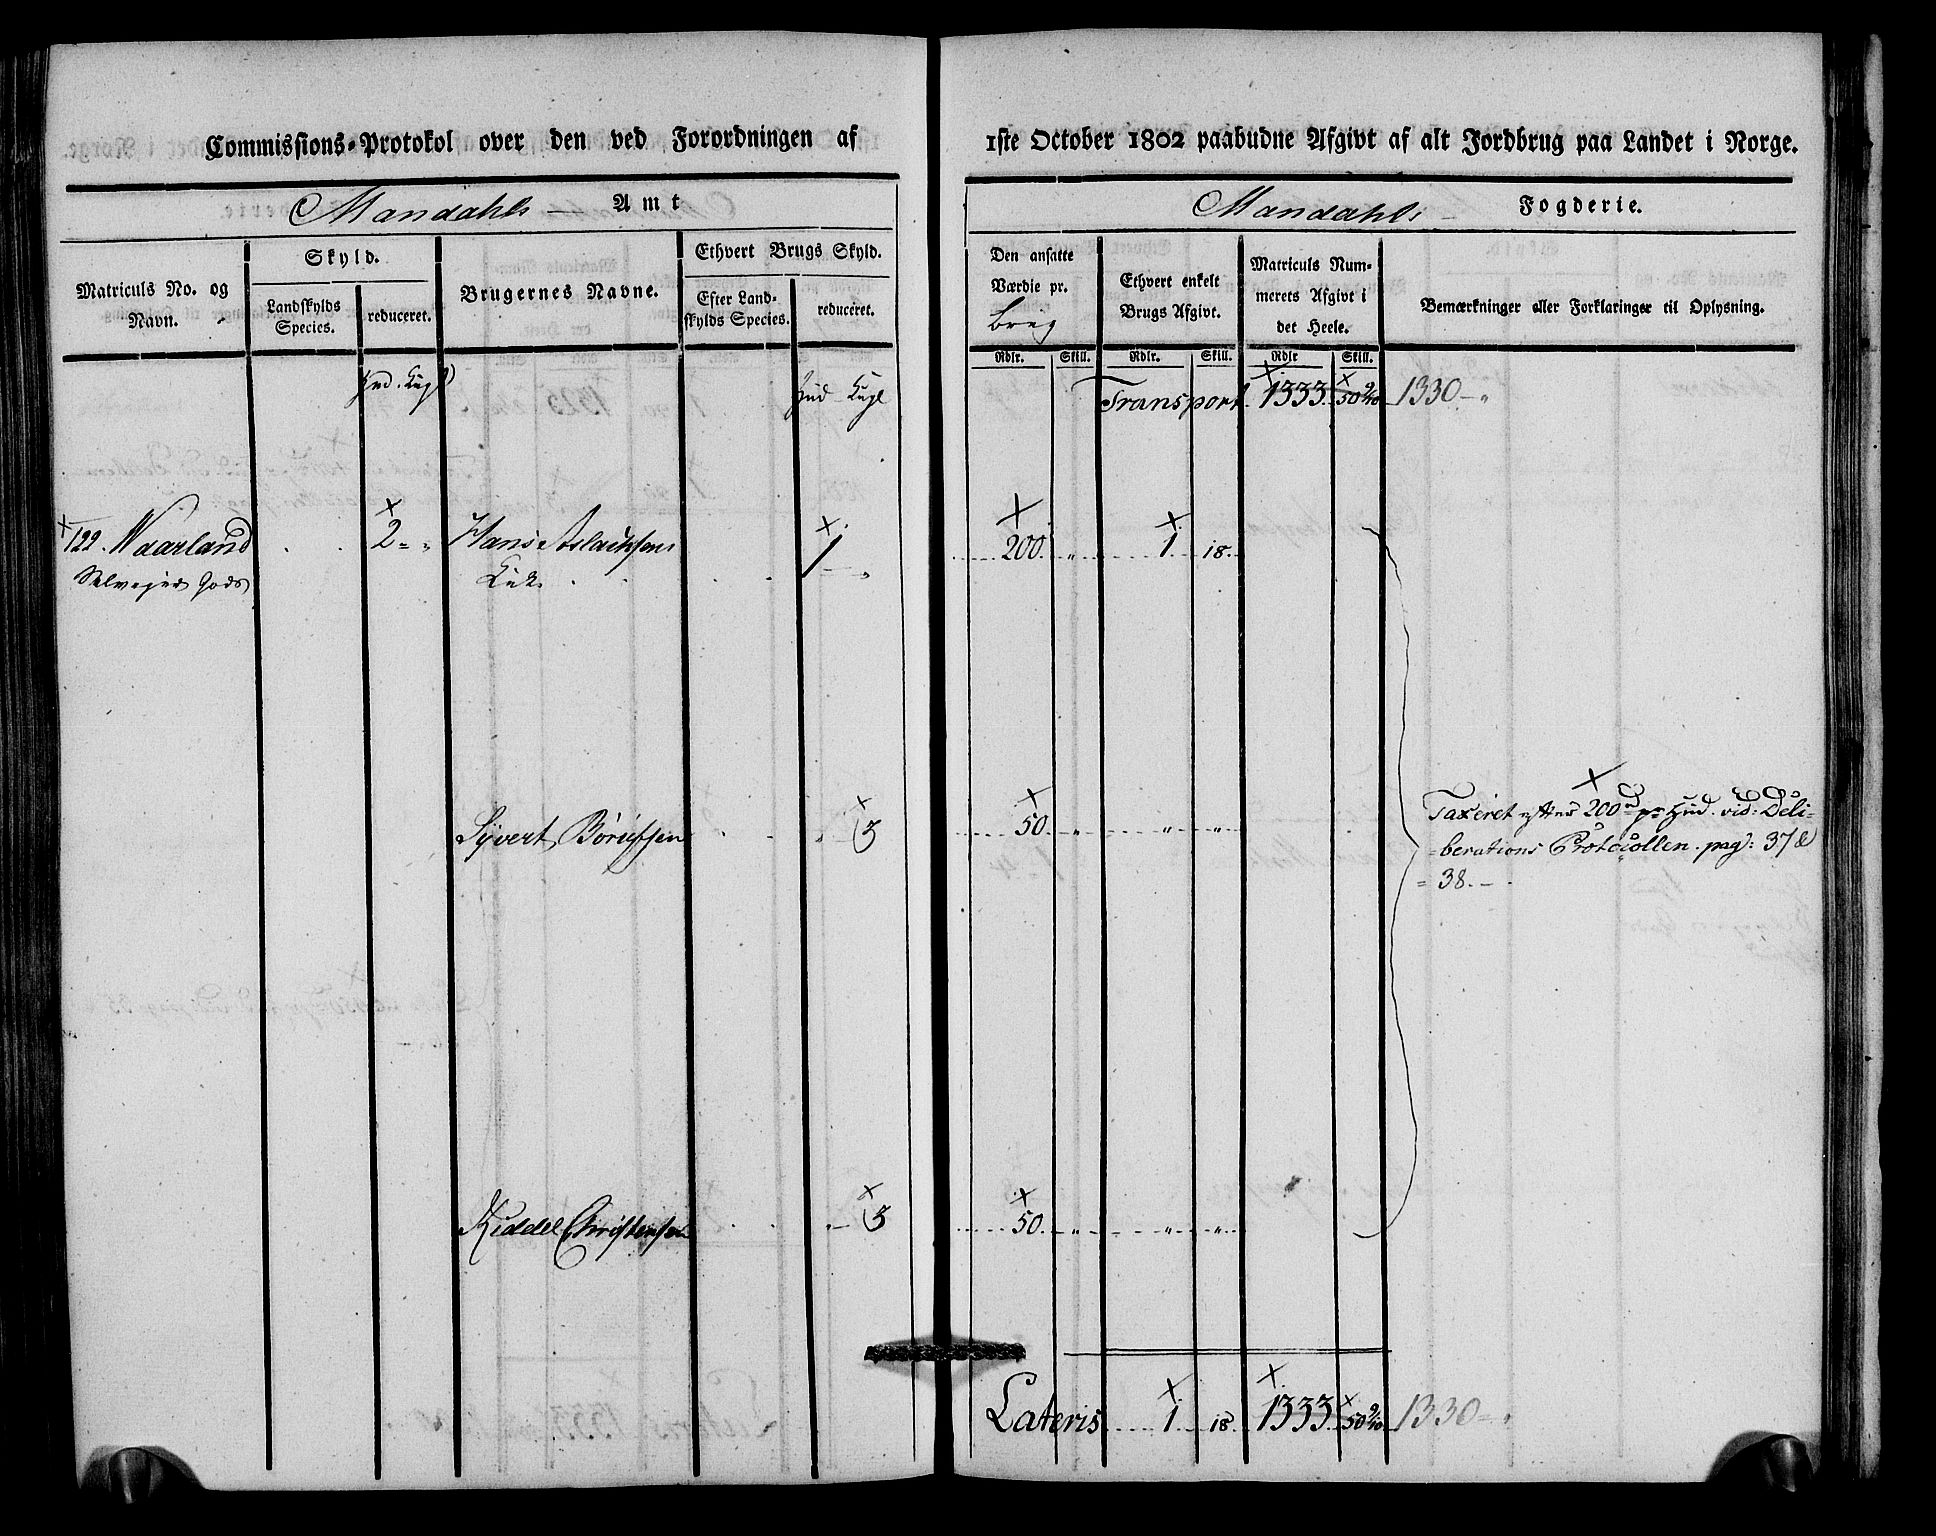 Commissions-Protokol over den ved Forordningen af 1ste October 1802 paabudne Afgivt af alt Jordbrug paa Landet i Norge.
Mandahls Amt
Mandahls Fogderie.
Matriculs No. og Navn.
Skyld.
Landskylds Species.
reduceret.
Brugernes Navne.
Ethvert Brugs Skyld.
Efter Landskylds Species.
reduceret.
Den ansatte Værdie pr. brug
Ethvert enkelt Brugs Afgivt.
Matriculs Nummerets Afgivt i det Heele.
Bemærkninger eller Forklaringer til Oplysning.
Rdlr. Skill. Rdlr. Skill. Rdlr Skill.
Hud Kugl
Transport 1333 50 9/10 1330 - "
122. Waarland 2 = " Hans Aslachsens 1 - " 200 " 1 18
Selvejer Gods Enke
Syvert Børufsen " 3 50 " " "
Taxeret efter 200 rd pr Hud. vid: Deli-
=berations Protocollen. pag: 37 &
= 38. -
Kiddel Christensen " 3 50 " " "
Lateris 1 18 1333 50 9/10 1330 = "